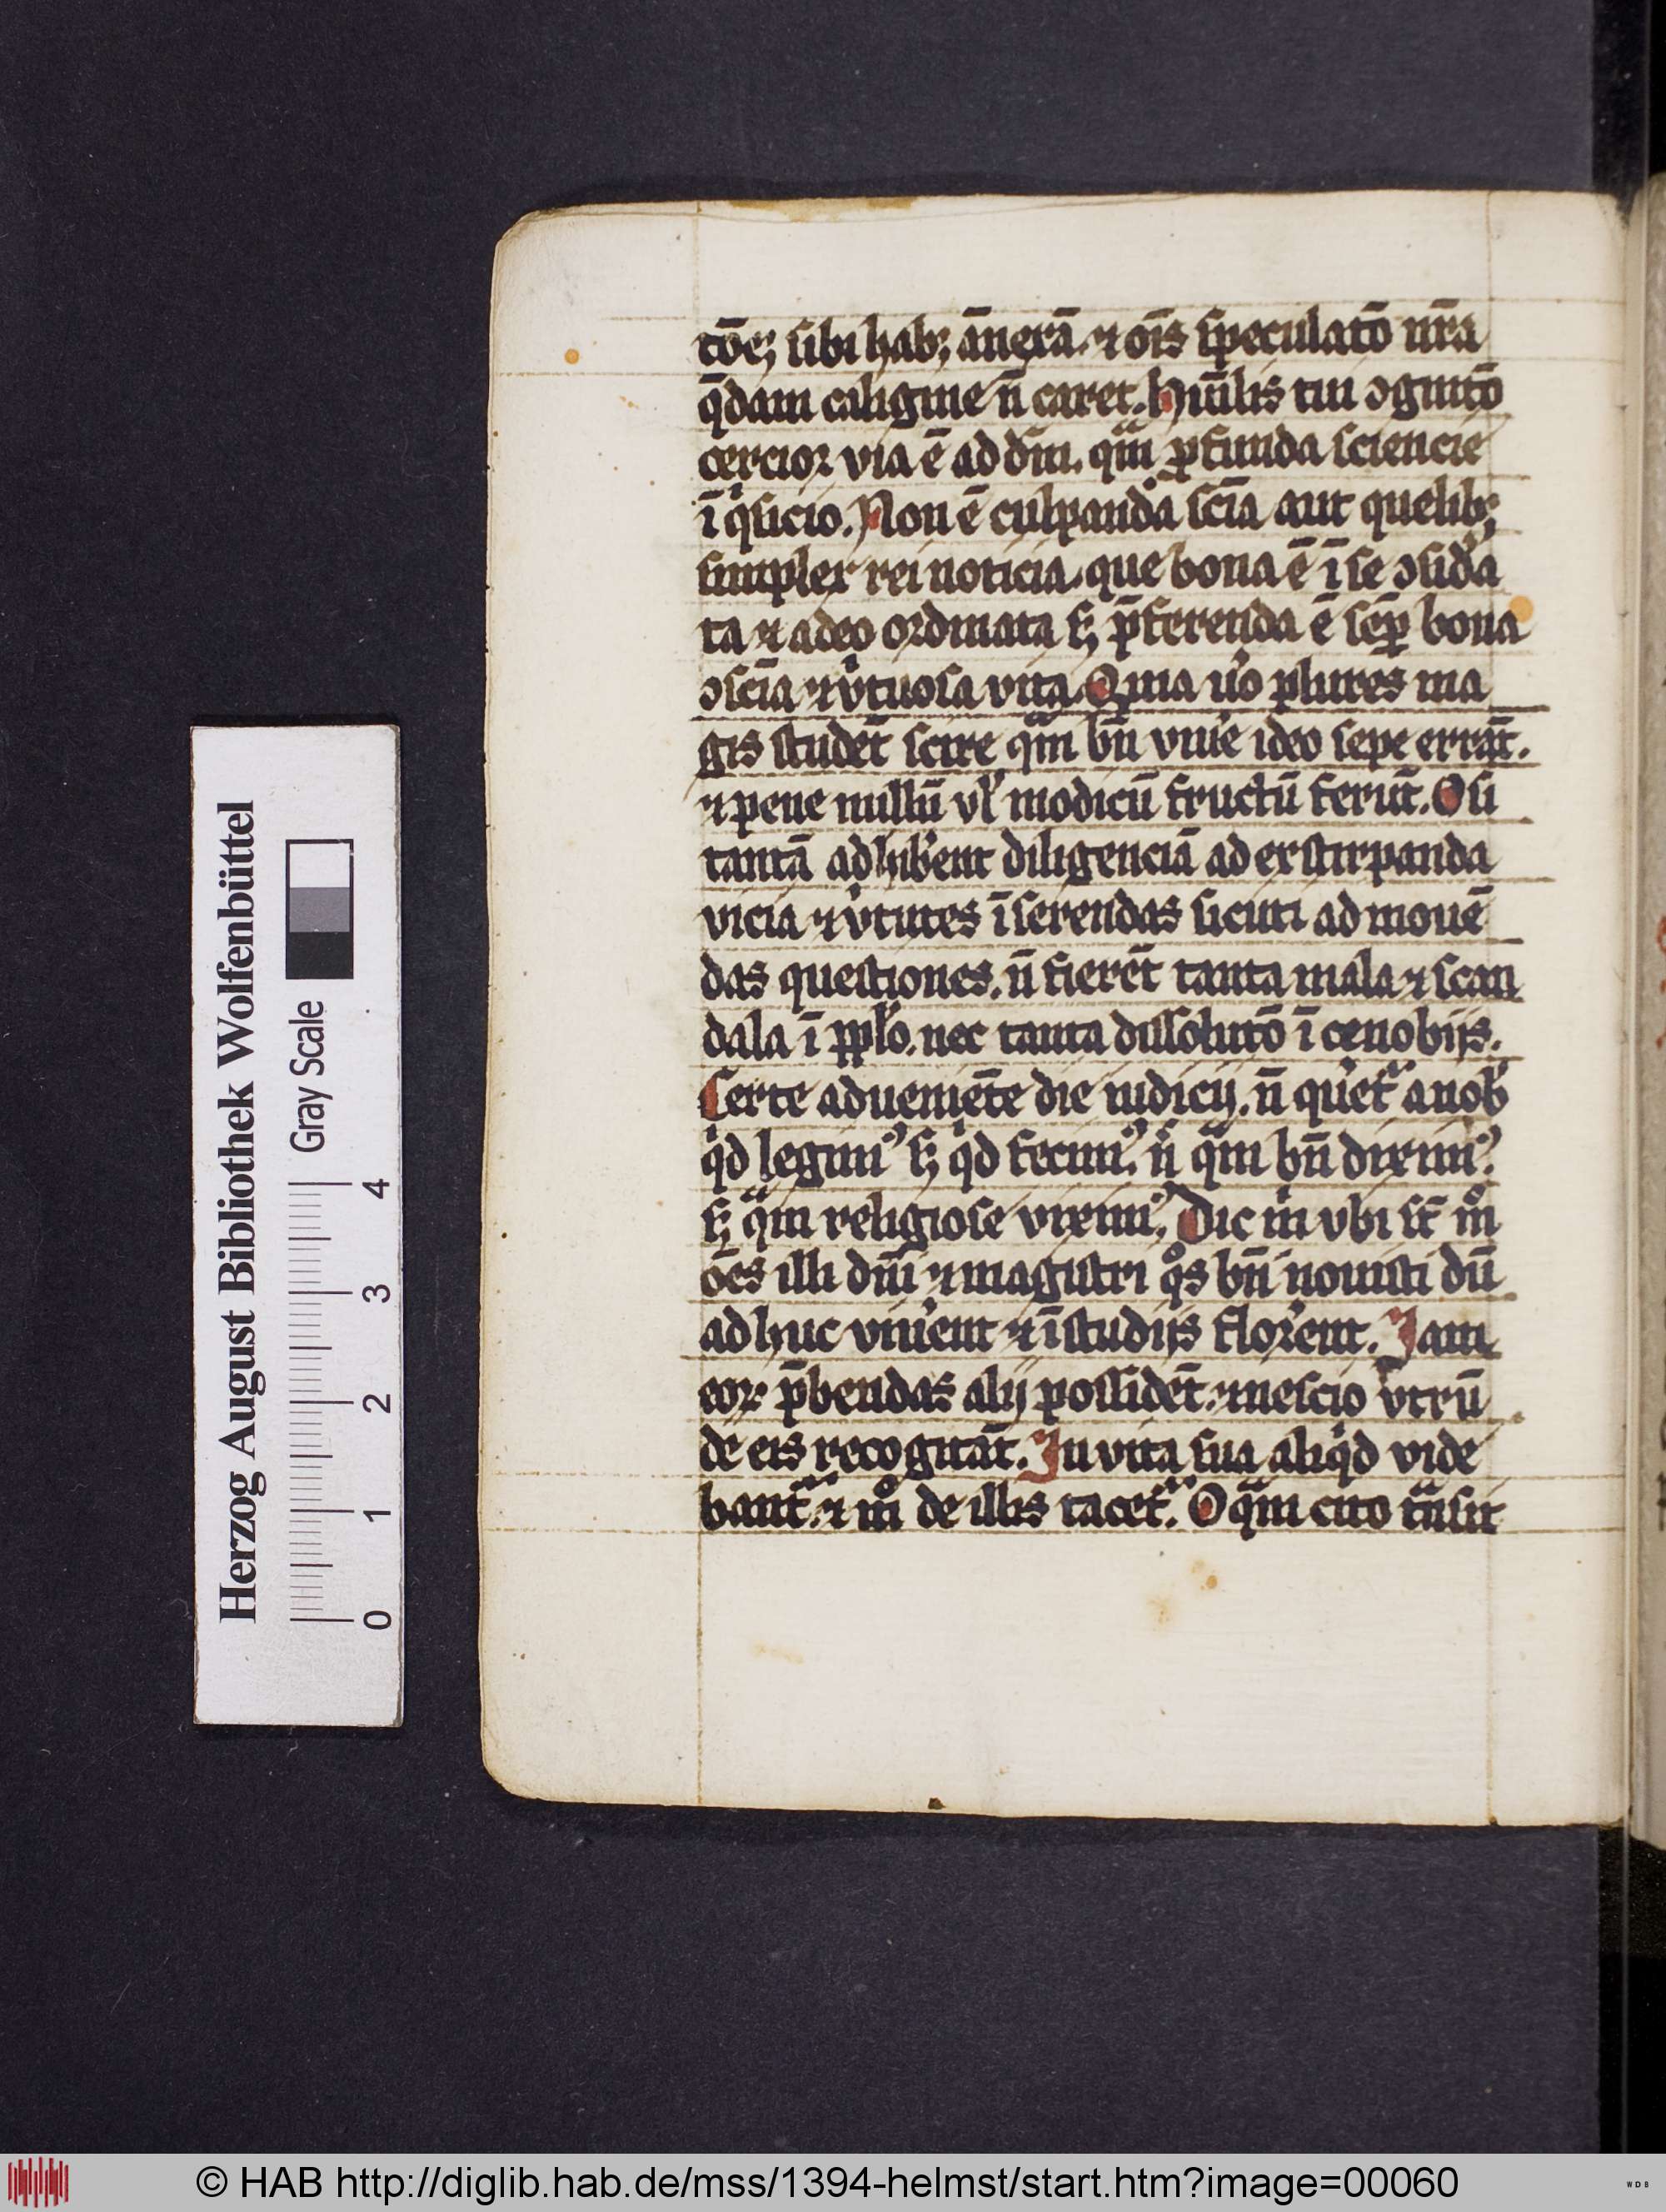 tōeʒ sibi habʒ ānexā. ⁊ oīs speculatō nr̄a
q̄dam caligine n̄ caret. Hūilis tui ɔgnitō
cercior via ē ad dm̄. qᵃm ꝓfunda sciencie
ī qͥsicio. Non ē culpanda scīa aut quelibʒ
simplex rei noticia. que bona ē ī se ɔsid'a
ta ⁊ a deo ordinata sʒ p̄ferenda ē semꝑ bona
ɔscīa ⁊ v'tuosa vita. Quia u'o plures ma
gis studēt scire qᵃm bn̄ viu'e ideo sepe errāt.
⁊ pene nullū vl' modicū fructū ferūt. O si
tantā adhib'ent diligenciā ad exstirpanda
vicia ⁊ v'tutes īserendas sicuti ad mouē
das questiones. n̄ fierēt tanta mala ⁊ scan
dala ī pplo. nec tanta dissolutō ī cenobijs.
Certe adueniēte die iudicij. n̄ quer̄etᵃ a nob'
qͥd legimꝰ sʒ qͥd fecimꝰ. n̄ qᵃm bn̄ diximꝰ.
sʒ qᵃm religiose viximꝰ. Dic mͥ vbi st̄ mᵒ
ōes illi dn̄i ⁊ magistri qᵒs bn̄ nouisti dū
adhuc viu'ent ⁊ ī studijs flor'ent. Jam
eoꝝ p̄bendas alij possidēt. ⁊ nescio vtrū
de eis recogitāt. In vita sua aliqͥd vide
bantᵃ. ⁊ mᵒ de illis tacetᵃ. O qᵃm cito tᵃnsit
Herzog August Bibliothek Wolfenbüttel
Gray Scale
0 1 2 3 4
© HAB http://diglib.hab.de/mss/1394-helmst/start.htm?image=00060
WDB